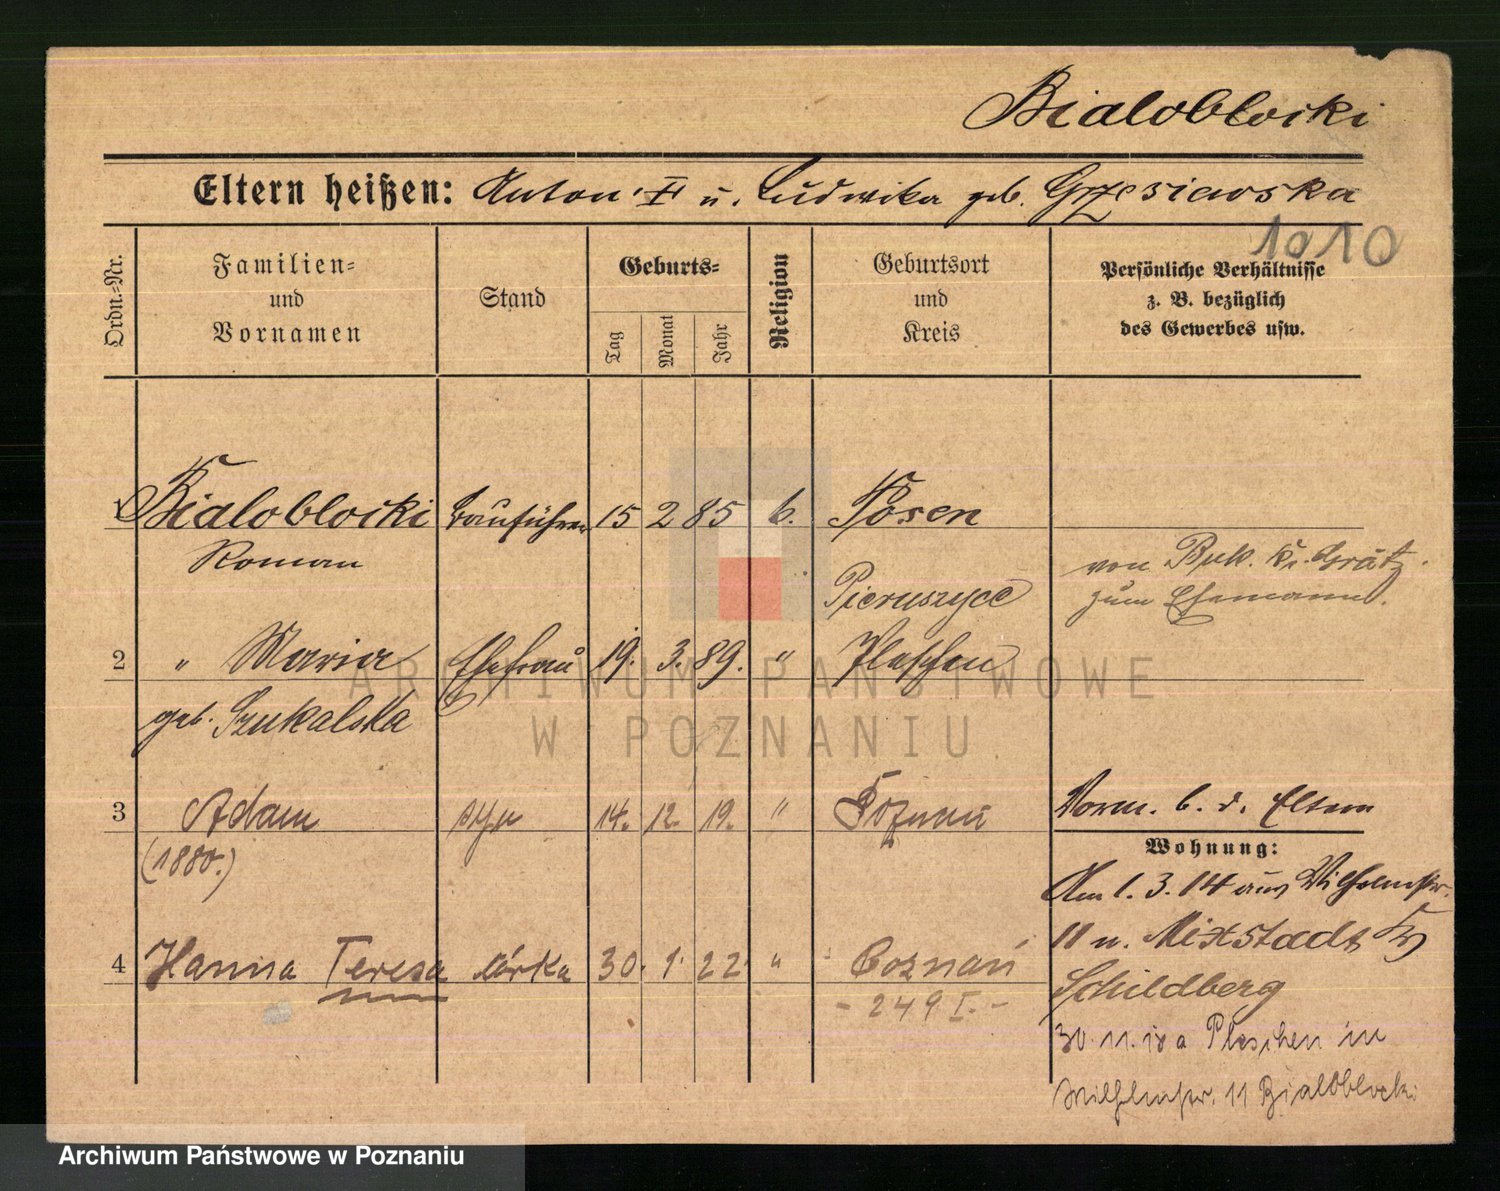 Bialoblocki
Eltern heißen: Anton † u. Ludwika geb. Grzesiawska
1010
Ordn.-Nr.
Familien-
und
Vornamen
Stand
Geburts-
Tag
Monat
Jahr
Religion
Geburtsort
und
Kreis
Persönliche Verhältnisse
z. B. bezüglich
des Gewerbes usw.
1 Bialoblocki Bauführer 15 2 85 k. Posen
Roman
von Buk. Kr. Grätz.
zum Ehemann.
Pieruszyce
2 " Maria Ehefrau 19. 3. 89. " Pleschen
geb. Szukalska
3 Adam syn 14. 12. 19. " Poznań
(1880.)
Vorm. b. d. Eltern
Wohnung:
Am 1. 3. 14 aus Wilhelmstr.
11 n. Mixstadt Kr
Schildberg
4 Hanna Teresa córka 30. 1. 22. " Poznań
- 249 I. -
30. 11. 18 a Pleschen in
Wilhelmstr. 11 Bialoblocki
ARCHIWUM PAŃSTWOWE
W POZNANIU
Archiwum Państwowe w Poznaniu